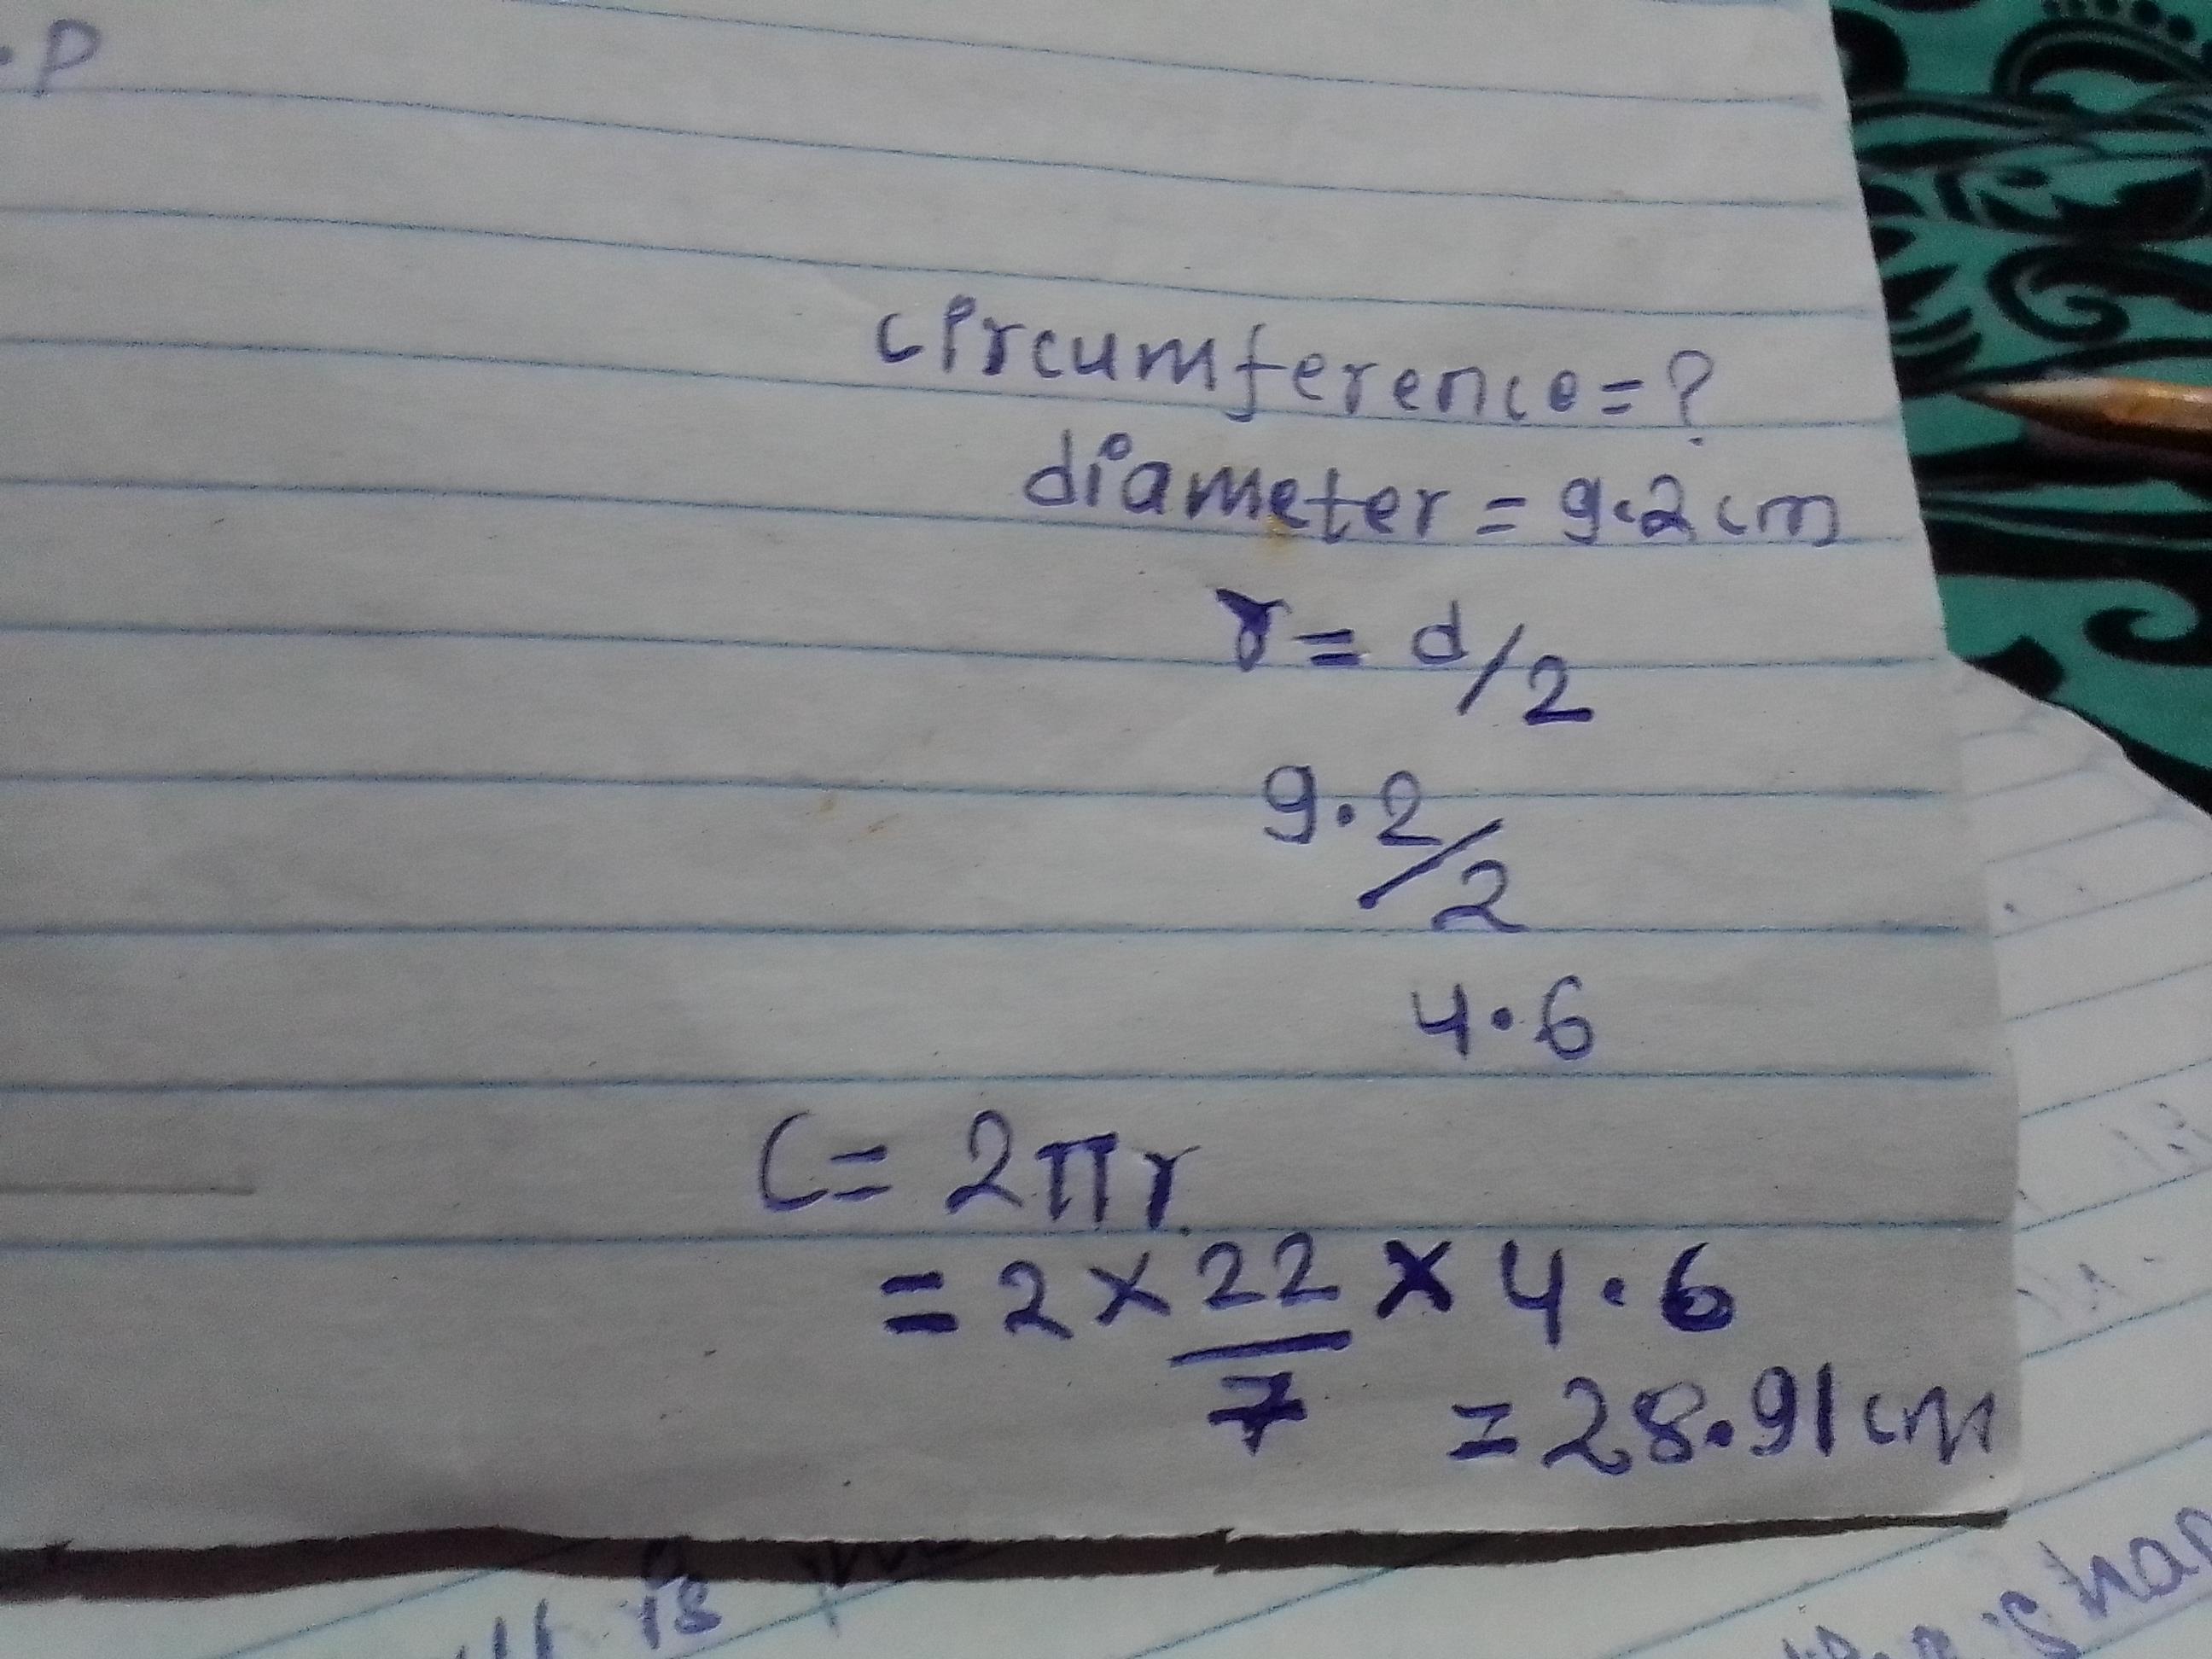 .p
circumference=?
diameter = 9.2 cm
r = d/2
9.2/2
4.6
C= 2πr
= 2 × 22/7 × 4.6
= 28.91 cm
is